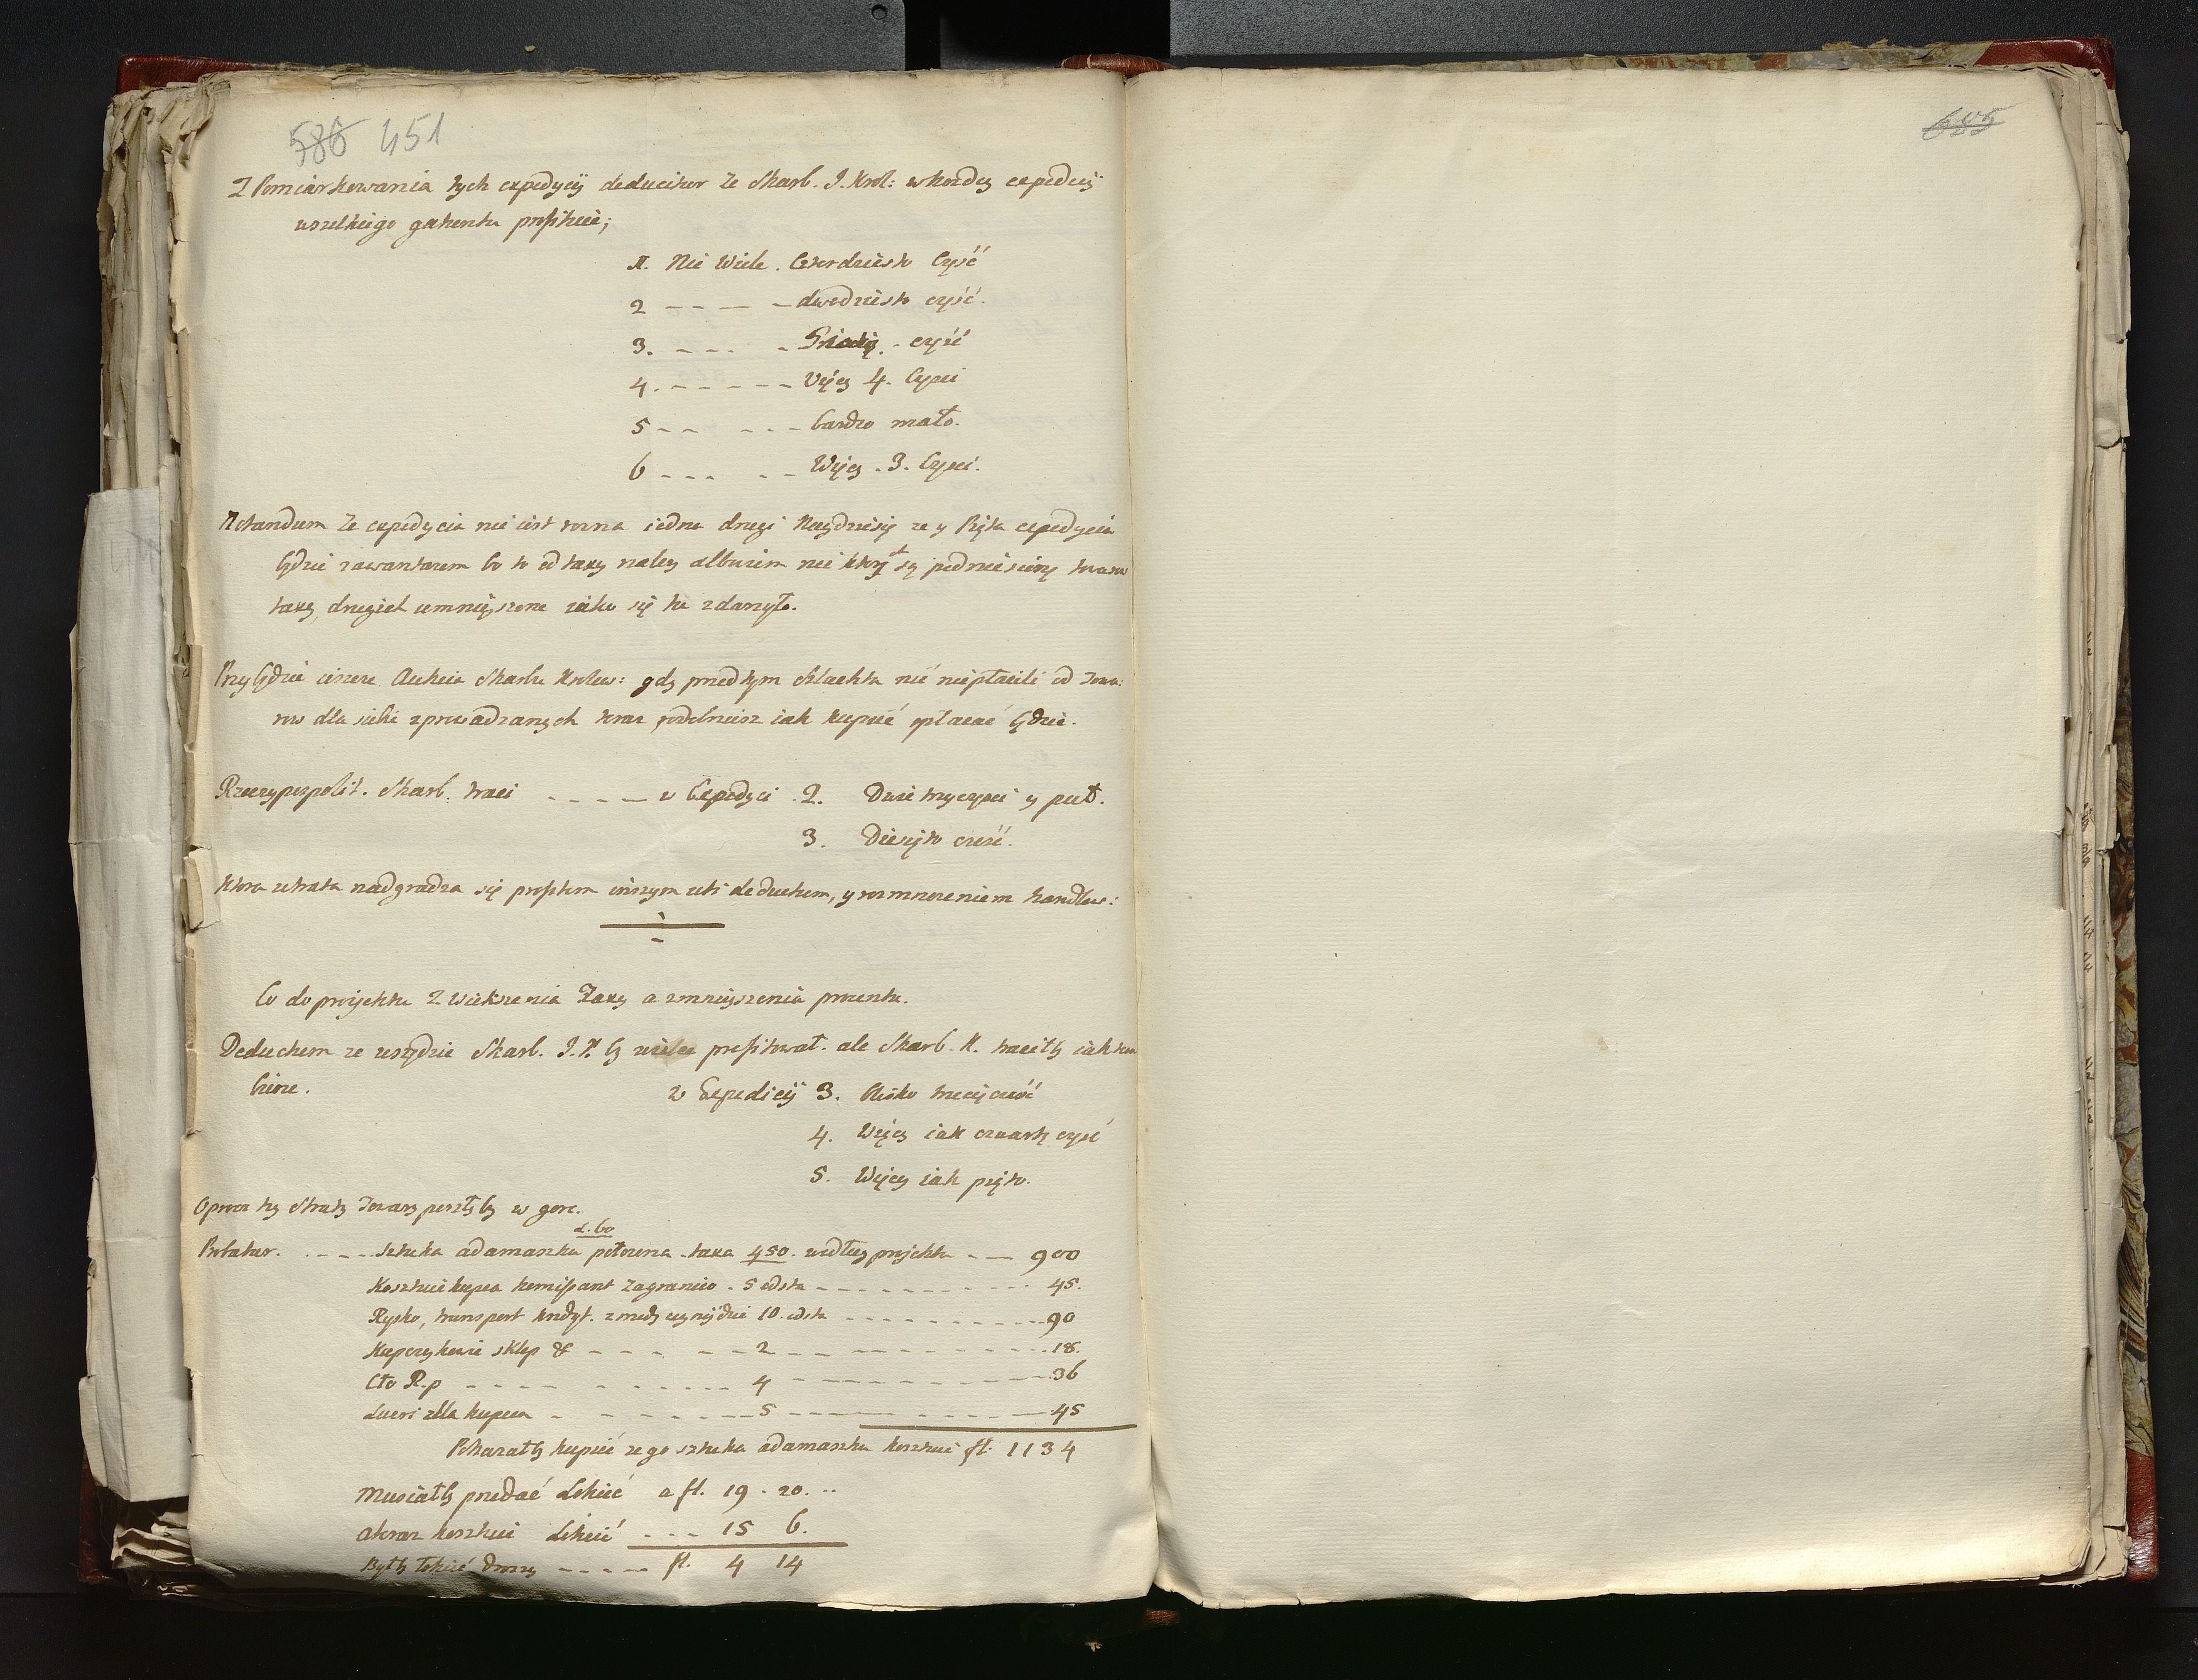 586 451
685
Z Pomiarkowania tych expedycij deducitur że Skarb. J. Krol: w kożdey expedycij
wszelkiego gatunku profituie;
1. Nie Wiele. Czterdziesto Część
2 - - - - dwodziesto część.
3. - - - - część
4. - - - - - Więcy 4. Części
5 - - - - - bardzo mało.
6 - - - - - Więcy. 3. Części.
Notandum że expedycia nie iest rowna iedna drugi Naydzie się ze y Piąta expedycia
będzie z awantarem bo to od taxy należy albowiem nie ktory są podniesiony towaru
taxy, drugich umnieyszone iako się tu zdarzyło.
Przy będzie ieszcze Aukcia Skarbu Krolew: gdy przed tym Szlachta nic nie płacili od Towa:
row dla siebie zprowadzanych teraz podobniesz iak kupiec opłacać będzie.
Rzeczypospolit. Skarb. traci - - - - w Expedyci 2. Dwie trzy części y puł.
3. Diesięto cześć.
Ktora utrata nadgradza się profitem inszym uti deduchem, y rozmnożeniem handlow:
Co do projektu Zwiekszenia Taxy a zmnieyszenia procentu.
Deduchem ze wszędzie Skarb. J. K. by wielce profitował. ale Skarb. R. traciłby iak
w Expedicij 3. Blisko trzecij cześć
4. Więcy iak czwartą część
5. Więcy iak pięto.
Oprocz ty straty Towary poszły by w gorę.
Ł. 60
Probatur. - - - - Sztuka adamaszku położena taxa 450. według projektu - - - 900
Kosztuie kupca Zagranico - 5 od sta - - - - 45.
Rysko, transport kredyt. 10. od sta - - - - 90
sklep & - - - - 2 - - - - 18.
Cło R.p - - - - 4 - - - - 36
Lucri dla kupca - - - - 5 - - - - 45
Pokazałby kupiec ze go sztuka adamaszku kosztuie fl. 1134
Musiałby przedać Łokieć a fl. 19 . 20. ..
a teraz kosztuie Łokieć - - - 15 6.
Byłby łokieć droży - - - - fl. 4 14